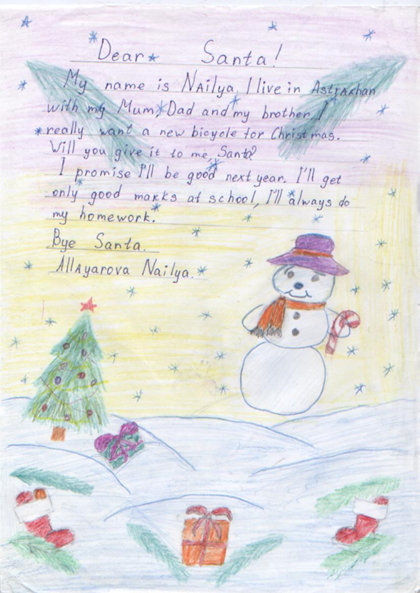 Dear Santa!
My name is Nailya. I live in Astrakhan
with my Mum, Dad and my brother. I
really want a new bicycle for Christmas.
Will you give it to me, Santa?
I promise I'll be good next year. I'll get
only good marks at school, I'll always do
my homework.
Bye Santa.
Allayarova Nailya.